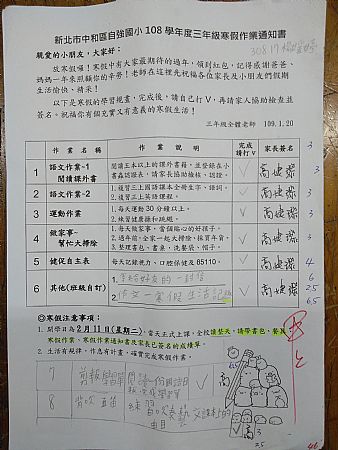 新北市中和區自強國小 108 學年度三年級寒假作業通知書
30817
親愛的小朋友，大家好：
放寒假囉！寒假中有大家最期待的過年，領到紅包，記得感謝爸爸、
媽媽一年來照顧你的辛勞！老師在這裡先祝福各位家長及小朋友們假期
生活愉快、精采！
以下是寒假的學習規畫，完成後，請自己打 V，再請家人協助檢查並
簽名。祝福你有個充實又有意義的寒假生活！
三年級全體老師 109.1.20
作 業 名 稱 作 業 說 明 完成請打 V 家長簽名 3
1 語文作業-1 閱讀課外書
閱讀五本以上的課外書籍，並登錄在小書蟲認證表，請家長協助檢核、認證。 V 3
2 語文作業-2
1.複習三上國語課本全冊生字、語詞。
2.複習三上英語課程。 V 3
3 運動作業
1.每天運動 30 分鐘以上。
2.練習健康操和跳繩。 V 3
4 做家事-幫忙大掃除
1.每天做家事，當個貼心的好孩子。
2.過年前，全家一起大掃除，採買年貨。
3.整理書包、書桌，洗餐袋、帽子。 V 3
5 健促自主表 每天記錄視力、口腔保健及 85110。 V 4
6 其他(班級自訂)
1.手給好友的一封信 6
2.作文-寒假生活記 V 25
65
◎寒假注意事項：
1. 開學日為 2 月 11 日(星期二)，當天正式上課，全校讀整天，請帶書包、餐具、
寒假作業、寒假作業通知書及家長已簽名的成績單。
2. 生活有規律，作息有計畫，確實完成寒假作業。
7 剪報學習單 V
8 背吹直笛 練習 V 3
曲
25
46